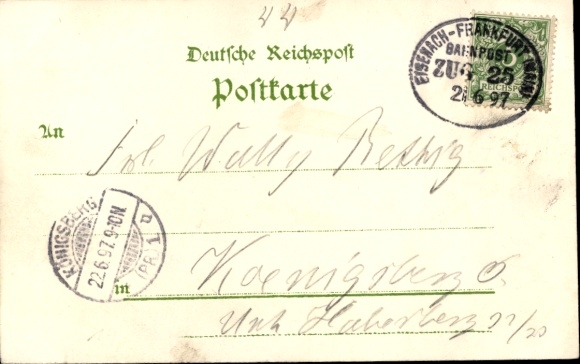 44
Deutsche Reichspost
Postkarte
EISENACH-FRANKFURT (MAIN)
BAHNPOST
ZUG 25
21 6 97
5
REICHSPOST
An
Frl. Wally Rettig
KÖNIGSBERG (PR) 1
22.6.97. 9-10N.
u
in
Koenigsberg
Unt. Haberberg